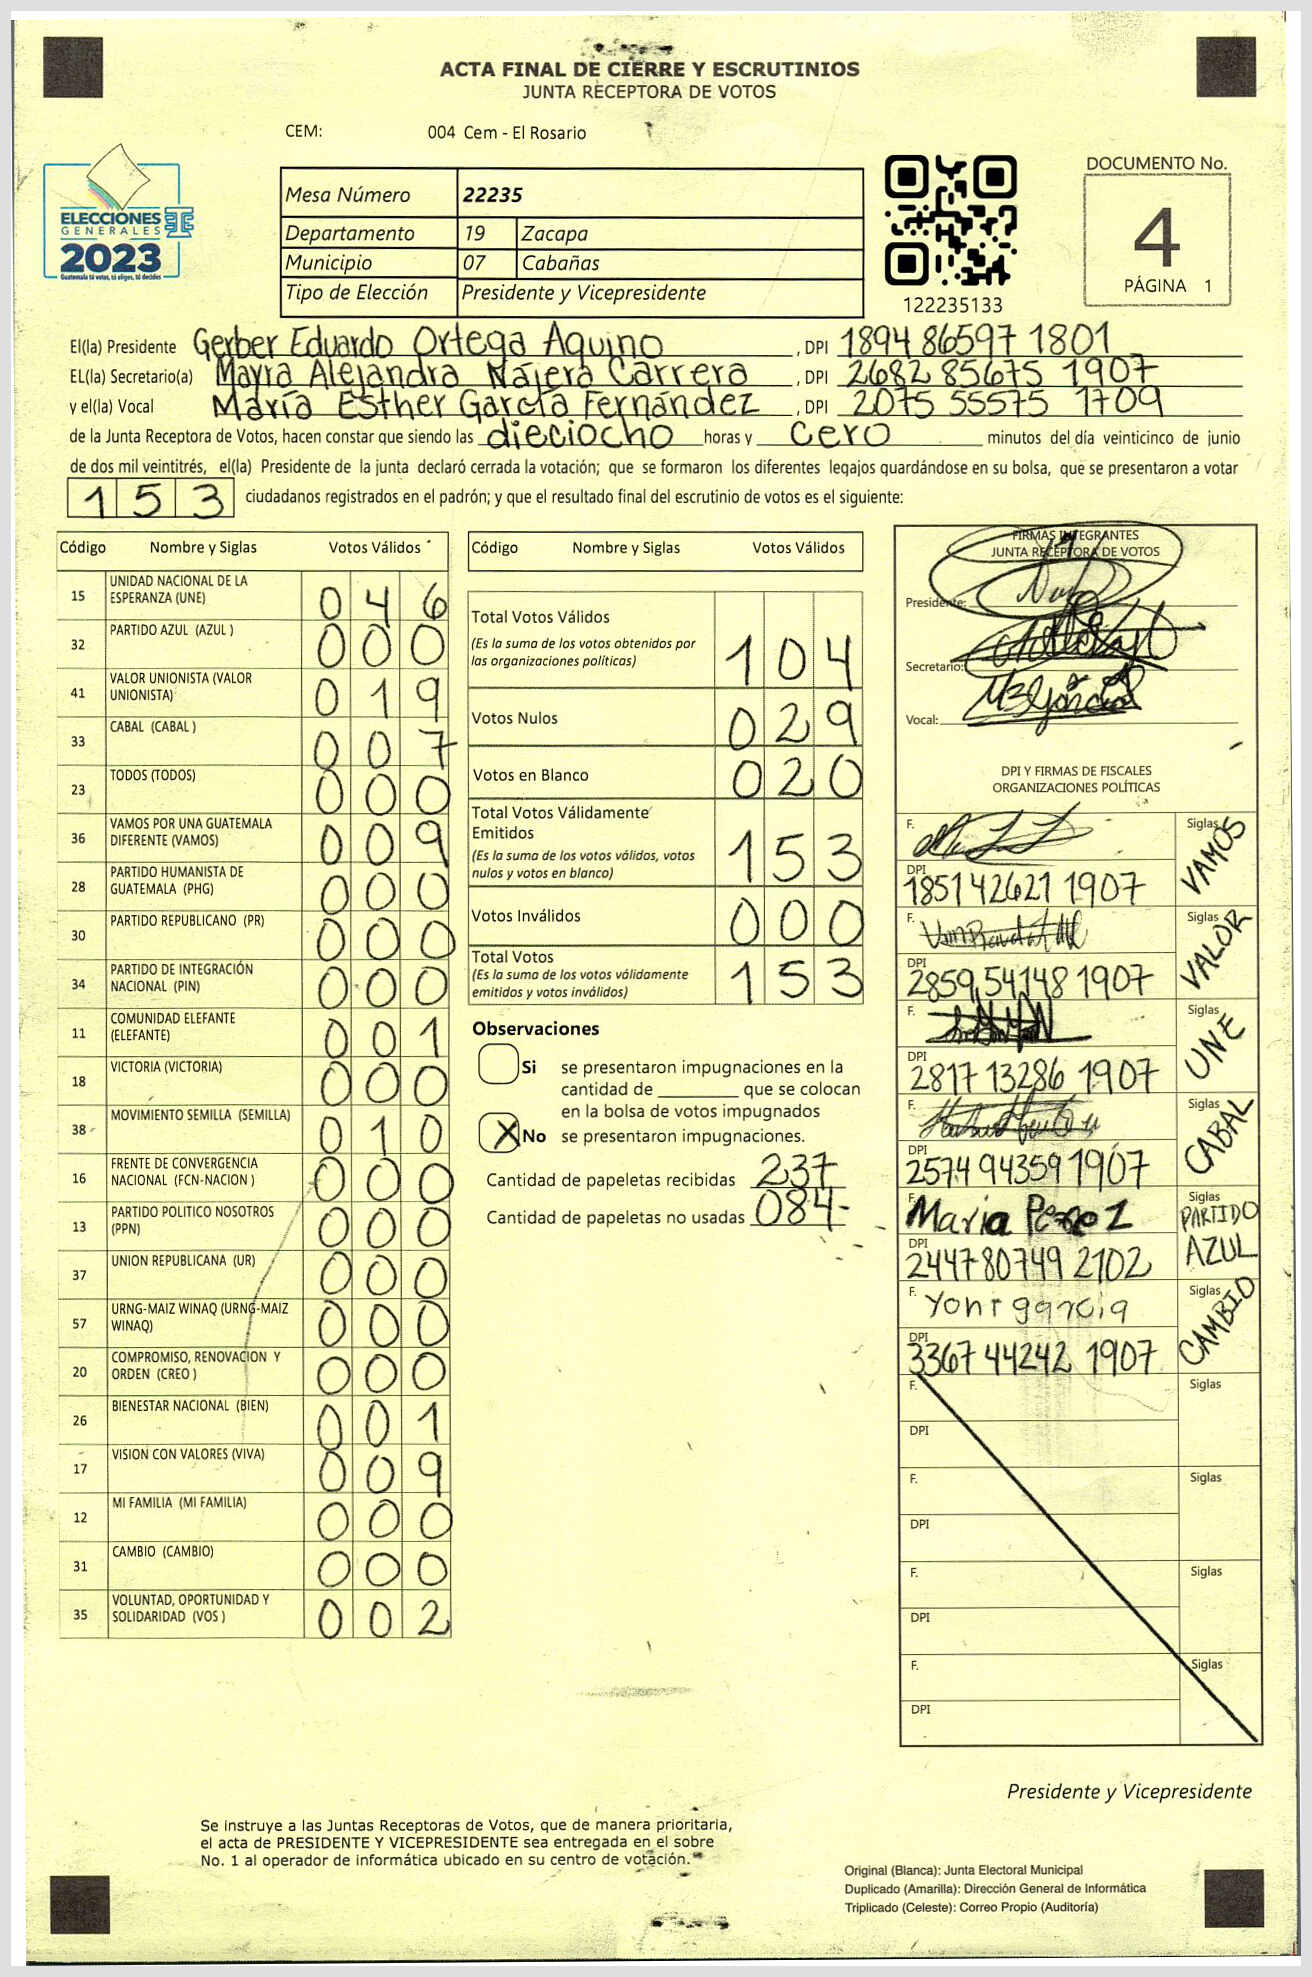 ACTA FINAL DE CIERRE Y ESCRUTINIOS
JUNTA RECEPTORA DE VOTOS
CEM: 004 Cem - El Rosario
ELECCIONES
GENERALES
2023
Guatemala tú votas, tú eliges, tú decides
Mesa Número 22235
Departamento 19 Zacapa
Municipio 07 Cabañas
Tipo de Elección Presidente y Vicepresidente
122235133
DOCUMENTO No.
4
PÁGINA 1
El(la) Presidente Gerber Eduardo Ortega Aquino, DPI 1894 86597 1801
EL(la) Secretario(a) Mayra Alejandra Nájera Carrera, DPI 2682 85675 1907
y el(la) Vocal María Esther García Fernández, DPI 2075 55575 1709
de la Junta Receptora de Votos, hacen constar que siendo las dieciocho horas y cero minutos del día veinticinco de junio
de dos mil veintitrés, el(la) Presidente de la junta declaró cerrada la votación; que se formaron los diferentes legajos guardándose en su bolsa, que se presentaron a votar
153 ciudadanos registrados en el padrón; y que el resultado final del escrutinio de votos es el siguiente:
Código Nombre y Siglas Votos Válidos
15 UNIDAD NACIONAL DE LA ESPERANZA (UNE) 046
32 PARTIDO AZUL (AZUL ) 000
41 VALOR UNIONISTA (VALOR UNIONISTA) 019
33 CABAL (CABAL ) 007
23 TODOS (TODOS) 000
36 VAMOS POR UNA GUATEMALA DIFERENTE (VAMOS) 009
28 PARTIDO HUMANISTA DE GUATEMALA (PHG) 000
30 PARTIDO REPUBLICANO (PR) 000
34 PARTIDO DE INTEGRACIÓN NACIONAL (PIN) 000
11 COMUNIDAD ELEFANTE (ELEFANTE) 001
18 VICTORIA (VICTORIA) 000
38 MOVIMIENTO SEMILLA (SEMILLA) 010
16 FRENTE DE CONVERGENCIA NACIONAL (FCN-NACION ) 000
13 PARTIDO POLITICO NOSOTROS (PPN) 000
37 UNION REPUBLICANA (UR) 000
57 URNG-MAIZ WINAQ (URNG-MAIZ WINAQ) 000
20 COMPROMISO, RENOVACION Y ORDEN (CREO ) 000
26 BIENESTAR NACIONAL (BIEN) 001
17 VISION CON VALORES (VIVA) 009
12 MI FAMILIA (MI FAMILIA) 000
31 CAMBIO (CAMBIO) 000
35 VOLUNTAD, OPORTUNIDAD Y SOLIDARIDAD (VOS ) 002
Código Nombre y Siglas Votos Válidos
Total Votos Válidos
(Es la suma de los votos obtenidos por
las organizaciones políticas) 104
Votos Nulos 029
Votos en Blanco 020
Total Votos Válidamente
Emitidos
(Es la suma de los votos válidos, votos
nulos y votos en blanco) 153
Votos Inválidos 000
Total Votos
(Es la suma de los votos válidamente
emitidos y votos inválidos) 153
Observaciones
Si se presentaron impugnaciones en la
cantidad de ________ que se colocan
en la bolsa de votos impugnados
X No se presentaron impugnaciones.
Cantidad de papeletas recibidas 237
Cantidad de papeletas no usadas 084-
FIRMAS INTEGRANTES
JUNTA RECEPTORA DE VOTOS
Presidente:
Secretario:
Vocal:
DPI Y FIRMAS DE FISCALES
ORGANIZACIONES POLÍTICAS
F. Siglas VAMOS
DPI 1851 42621 1907
F. Siglas VALOR
DPI 2859 54148 1907
F. Siglas UNE
DPI 2817 13286 1907
F. Siglas CABAL
DPI 2574 94359 1907
F. Maria Perez Siglas PARTIDO AZUL
DPI 2447 80749 2102
F. Yoni garcia Siglas CAMBIO
DPI 3367 44242 1907
F. Siglas
DPI
F. Siglas
DPI
F. Siglas
DPI
F. Siglas
DPI
Presidente y Vicepresidente
Se instruye a las Juntas Receptoras de Votos, que de manera prioritaria,
el acta de PRESIDENTE Y VICEPRESIDENTE sea entregada en el sobre
No. 1 al operador de informática ubicado en su centro de votación.
Original (Blanca): Junta Electoral Municipal
Duplicado (Amarilla): Dirección General de Informática
Triplicado (Celeste): Correo Propio (Auditoría)